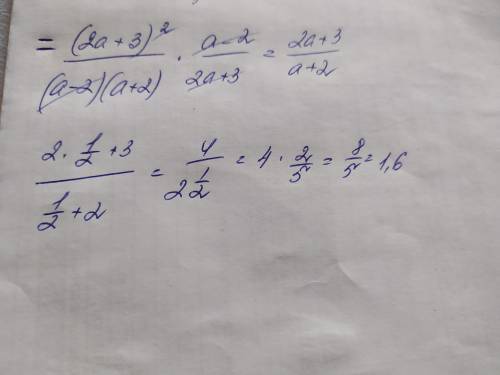 = (2a+3)² / (a-2)(a+2) · a-2 / 2a+3 = 2a+3 / a+2
2·1/2+3 / 1/2+2 = 4 / 2 1/2 = 4·2/5 = 8/5 = 1,6